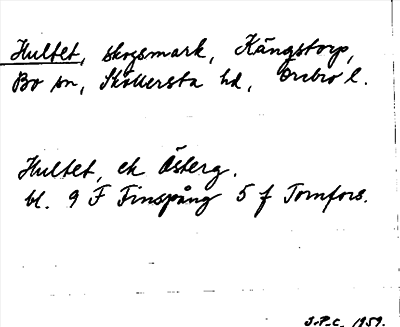 Hultet, skogsmark, Kångstorp,
Bo sn, Sköllersta hd, Örebro l.
Hultet, ek Österg.
bl. 9 F Finspång 5 f Tomfors.
J.P.C. 1959.